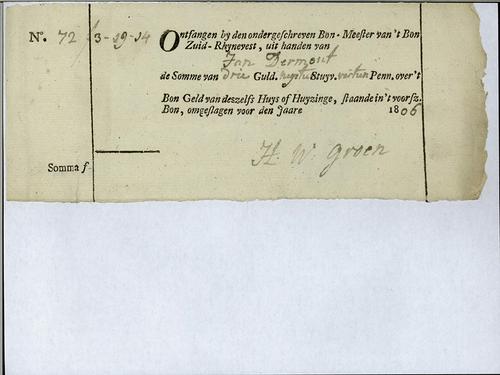 No. 72
3-19-14
Ontfangen by den ondergeschreven Bon-Meester van 't Bon
Zuid-Rhynevest, uit handen van
Jan Dermont
de Somme van drie Guld. Stuyv. Penn. over 't
Bon Geld van deszelfs Huys of Huyzinge, staande in 't voorsz.
Bon, omgeslagen voor den Jaare 1806
H. W. Groen
Somma f